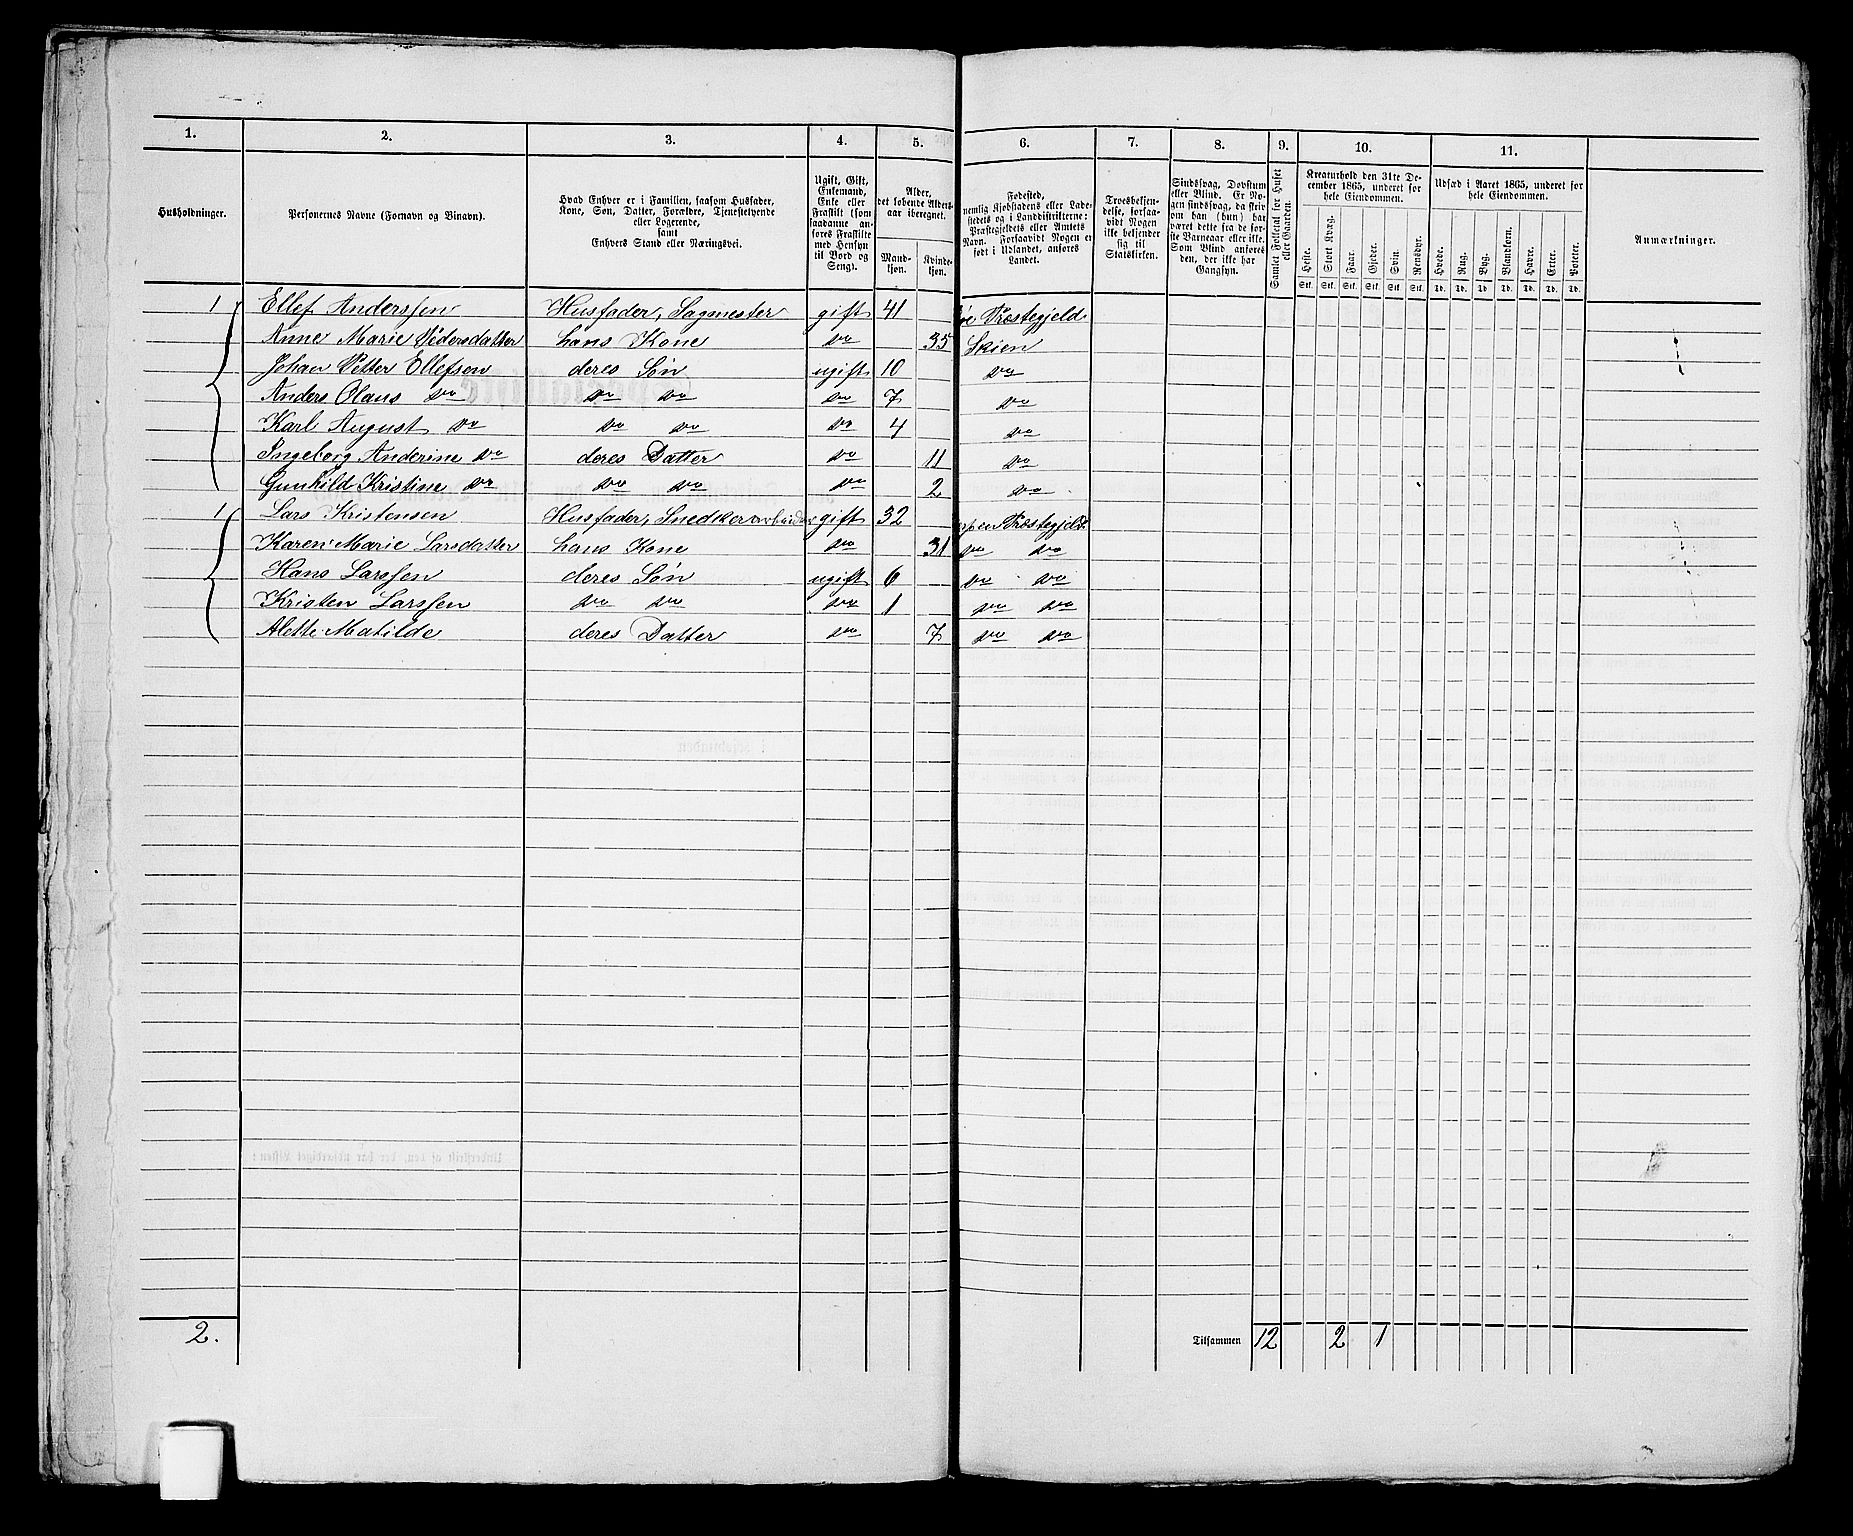 1. 2. 3. 4. 5. 6. 7. 8. 9. 10. 11.
Husholdninger.
Personernes Navne (Fornavn og Binavn).
Hvad Enhver er i Familien, saasom Husfader,
Kone, Søn, Datter, Forældre, Tjenestetyende
eller Logerende,
samt
Enhvers Stand eller Næringsvei.
Ugift, Gift,
Enkemand,
Enke eller
Fraskilt (som
saadanne an-
føres Fraskilte
med Hensyn
til Bord og
Seng).
Alder,
det løbende Alders-
aar iberegnet.
Mand-
kjøn.
Kvinde-
kjøn.
Fødested,
nemlig Kjøbstadens eller Lade-
stedets og i Landdistrikterne:
Præstegjeldets eller Amtets
Navn. Forsaavidt Nogen er
født i Udlandet, anføres
Landet.
Troesbekjen-
delse, forsaa-
vidt Nogen
ikke bekjender
sig til
Statskirken.
Sindssvag, Døvstum
eller Blind. Er No-
gen sindssvag, da skriv
om han (hun) har
været dette fra de før-
ste Barneaar eller ikke.
Som Blind anføres
den, der ikke har
Gangsyn.
Samlet Folketal for Huset
eller Gaarden.
Kreaturhold den 31te De-
cember 1865, underet for
hele Eiendommen.
Heste. Stort Kvæg. Faar. Gjeder. Svin. Rensdyr.
Stk. Stk. Stk. Stk. Stk. Stk.
Udsæd i Aaret 1865, underet for
hele Eiendommen.
Hvede. Rug. Byg. Blandkorn. Havre. Erter. Poteter.
Td. Td. Td. Td. Td. Td. Td.
Anmærkninger.
1 Ellef Anderssen Husfader, Sagmester gift 41 Præstegjeld
Anne Marie Pedersdatter hans Kone do 35 Skien
Johan Petter Ellefsen deres Søn ugift 10 do
Anders Olaus do do do do 7 do
Karl August do do do do 4 do
Ingeborg Anderine do deres Datter do 11 do
Gunhild Kristine do do do do 2 do
1 Lars Kristensen Husfader, Snedkerarbeider gift 32 Præstegjeld
Karen Marie Larsdatter hans Kone do 31 do do
Hans Larssen deres Søn ugift 6 do do
Kristen Larssen do do do 1 do do
Alette Matilde deres Datter do 7 do do
2. Tilsammen 12 2 1